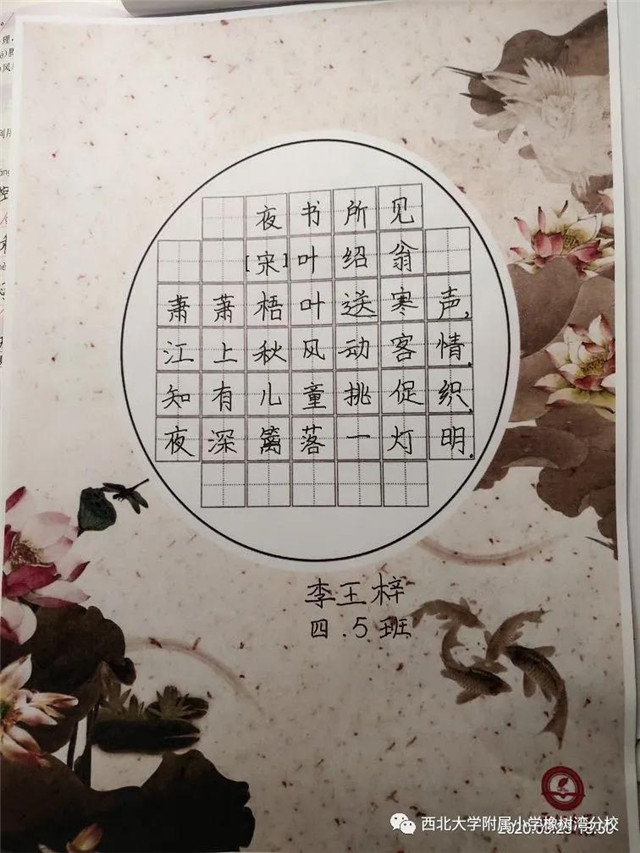 夜书所见
[宋]叶绍翁
萧萧梧叶送寒声,
江上秋风动客情.
知有儿童挑促织,
夜深篱落一灯明.
李王梓
四.5班
西北大学附属小学橡树湾分校